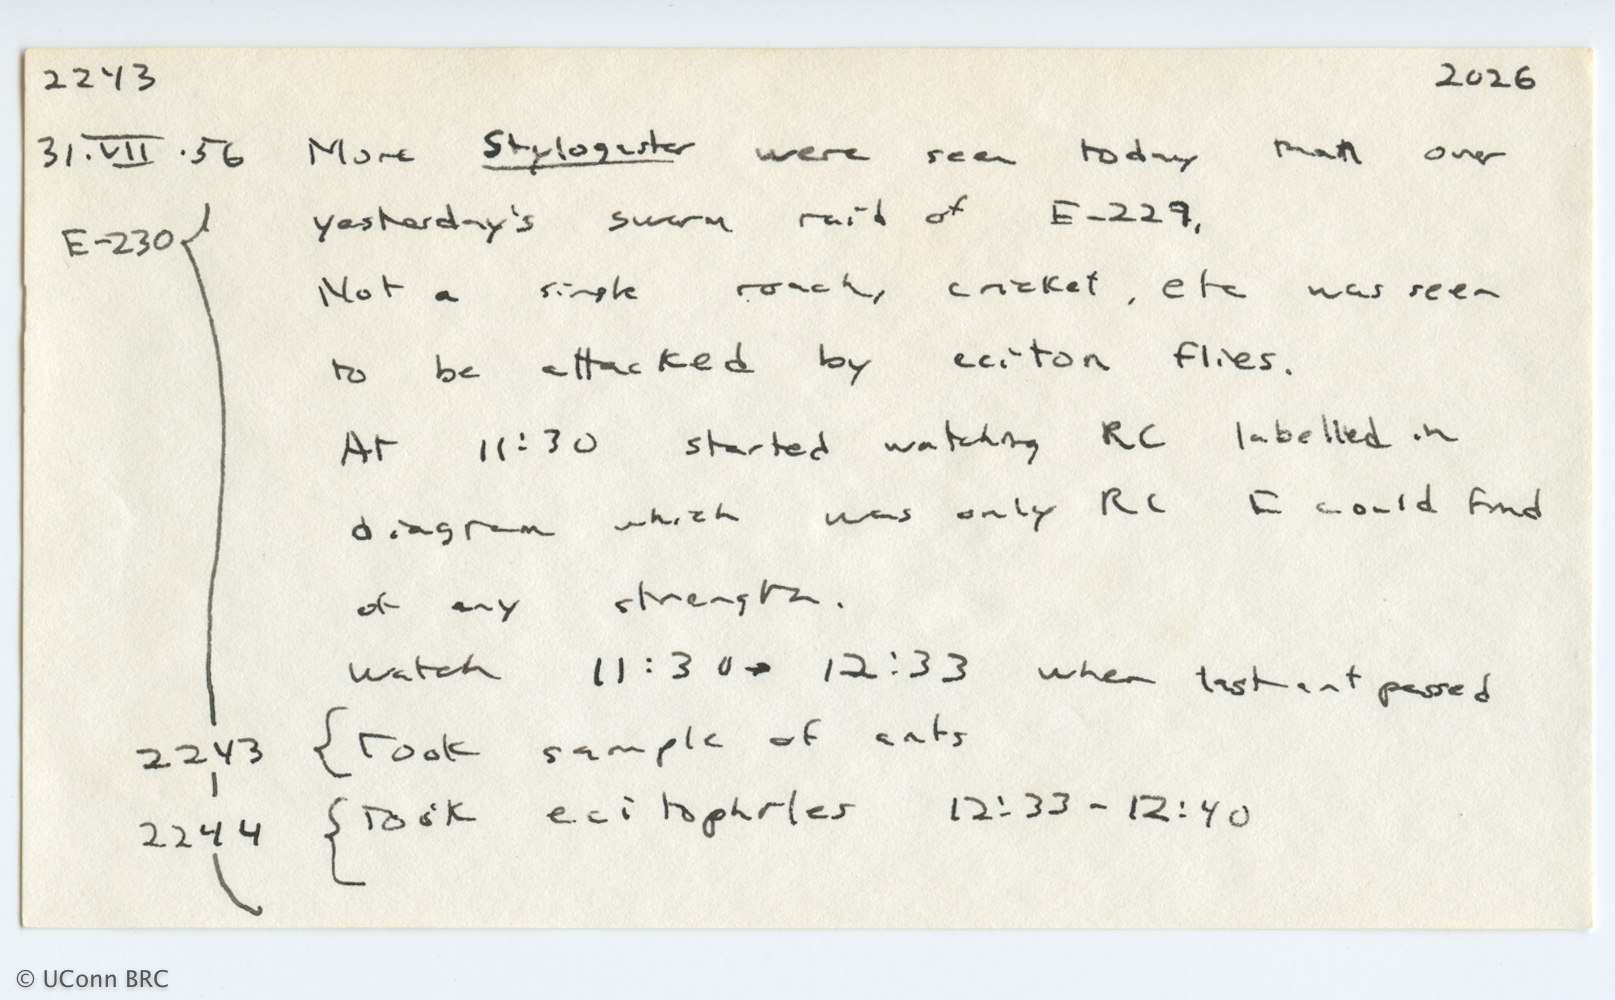 2243 2026
31.VII.56 More Stylogaster were seen today than over
E-230 yesterday's swarm raid of E-229.
Not a single roach, cricket, etc was seen
to be attacked by eciton flies.
At 11:30 started watching RC labelled in
diagram which was only RC I could find
of any strength.
Watch 11:30→ 12:33 when last ant passed
2243 {Took sample of ants
2244 {Took ecitophiles 12:33-12:40
© UConn BRC